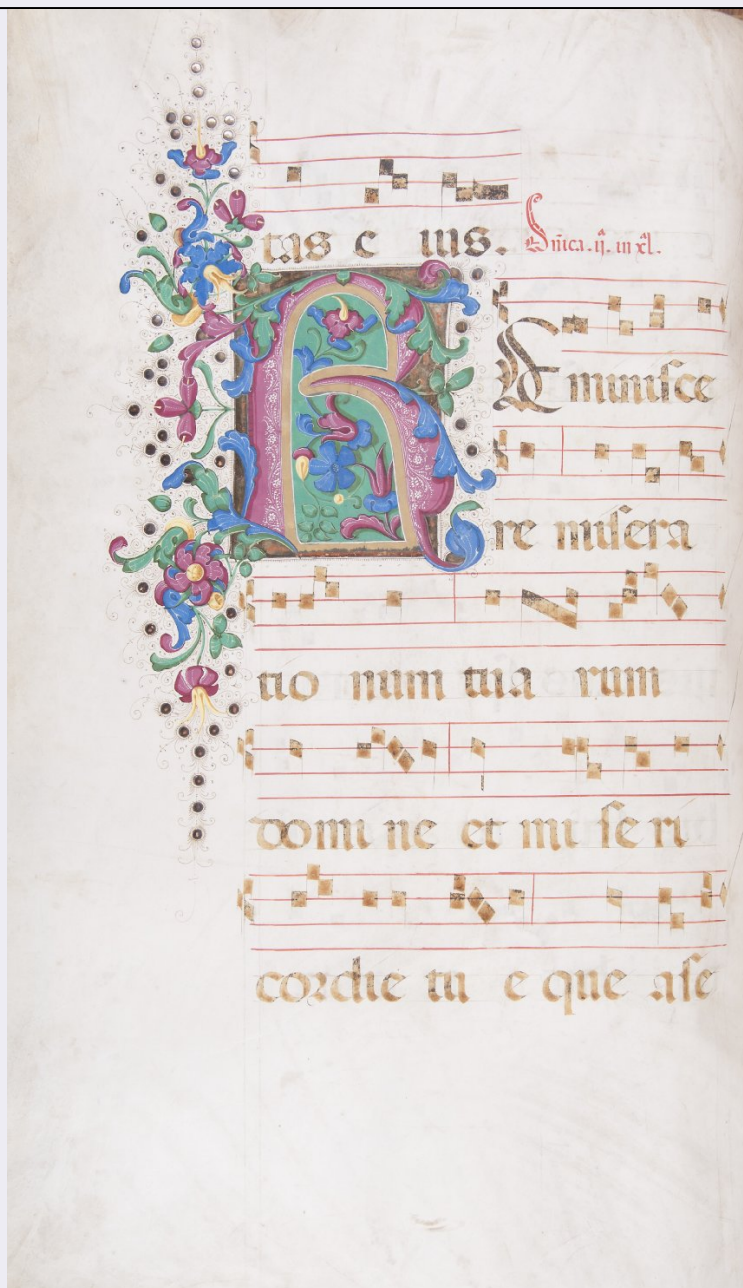 tas e ius. Dnica. ij. in xl.
REminisce
re misera
tio num tua rum
domi ne et mi se ri
cordie tu e que a se